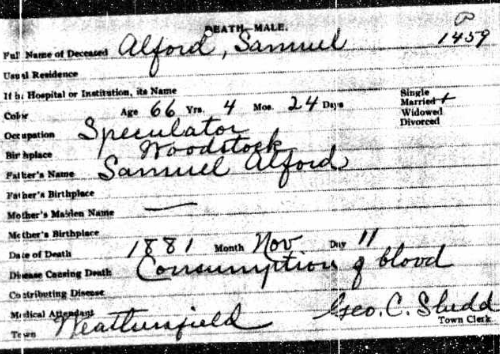 DEATH—MALE.
P
1459
Full Name of Deceased Alford, Samuel
Usual Residence
If in Hospital or Institution, its Name
Color Age 66 Yrs. 4 Mos. 24 Days
Single
Married
Widowed
Divorced
Occupation Speculator
Birthplace Woodstock
Father's Name Samuel Alford
Father's Birthplace
Mother's Maiden Name —
Mother's Birthplace
Date of Death 1881 Month Nov Day 11
Disease Causing Death Consumption of blood
Contributing Disease
Medical Attendant
Town Weathersfield Geo. C. Shedd
Town Clerk